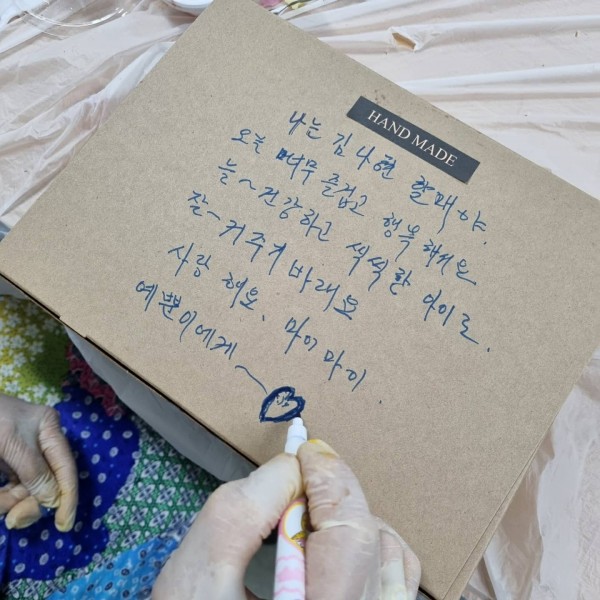 HAND MADE
나는 김나현 할매야.
오늘 너무 즐겁고 행복해거요
늘~건강하고 씩씩한 아이로.
잘~커주기 바래요
사랑해요. 마이마이
예쁜이에게~